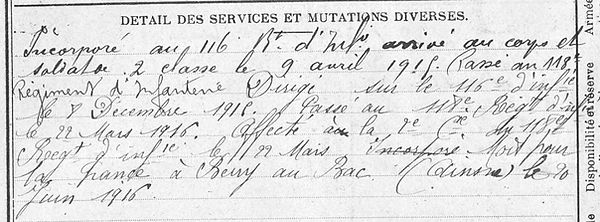 DETAIL DES SERVICES ET MUTATIONS DIVERSES.
Incorporé au 116 Rt d'Infie arrivé au corps et
soldat de 2 classe le 9 avril 1915. Passé au 118e
Régiment d'Infanterie Dirigé sur le 116e d'infie
le 8 Décembre 1915. Passé au 118e Regt d'infie
le 22 Mars 1916. Affecté au la 2e Cie du 118e
Regt d'infie le 22 Mars Incorporé Mort pour
la france à Berry au Bac (Ainsne) le 20
Juin 1916.
Armée
Disponibilité et réserve